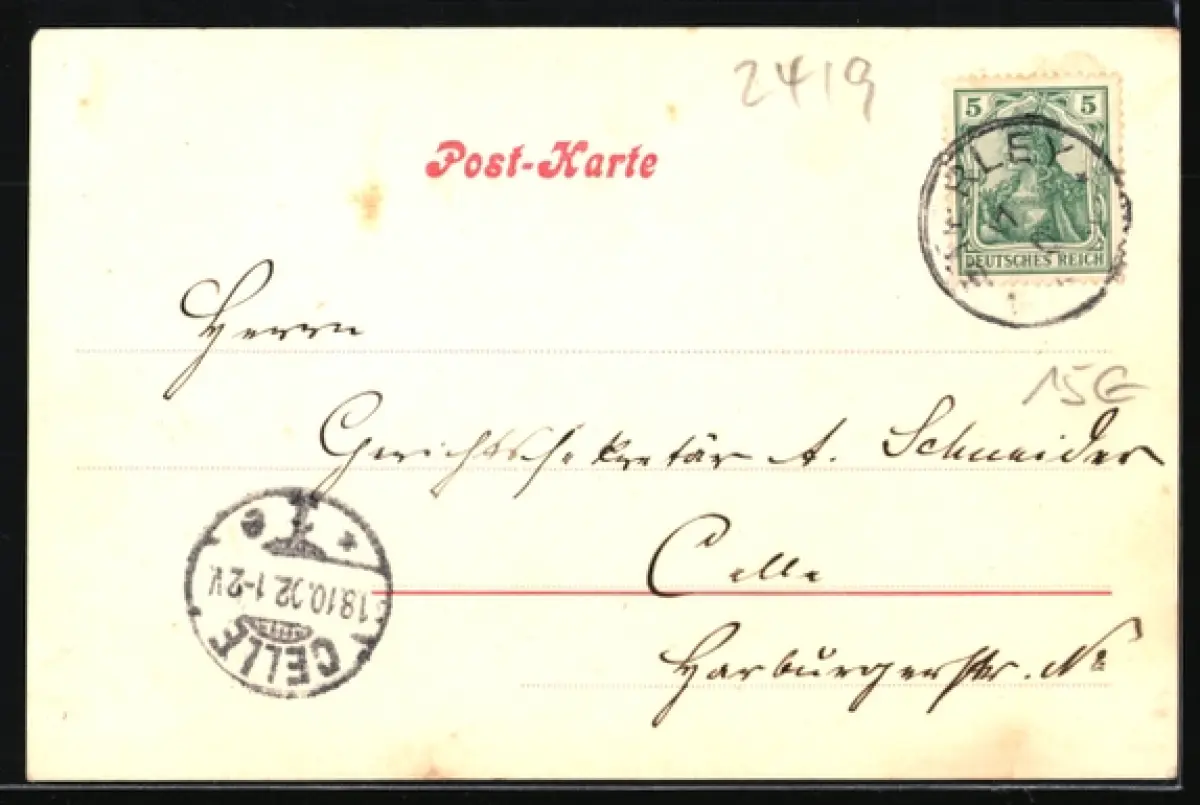 2419
5 5
DEUTSCHES REICH
Post-Karte
Herrn
15G
Gerichtssekretär A. Schneider
Celle
Harburgerstr. No
CELLE
18.10.02 1-2 V.
* 1 e